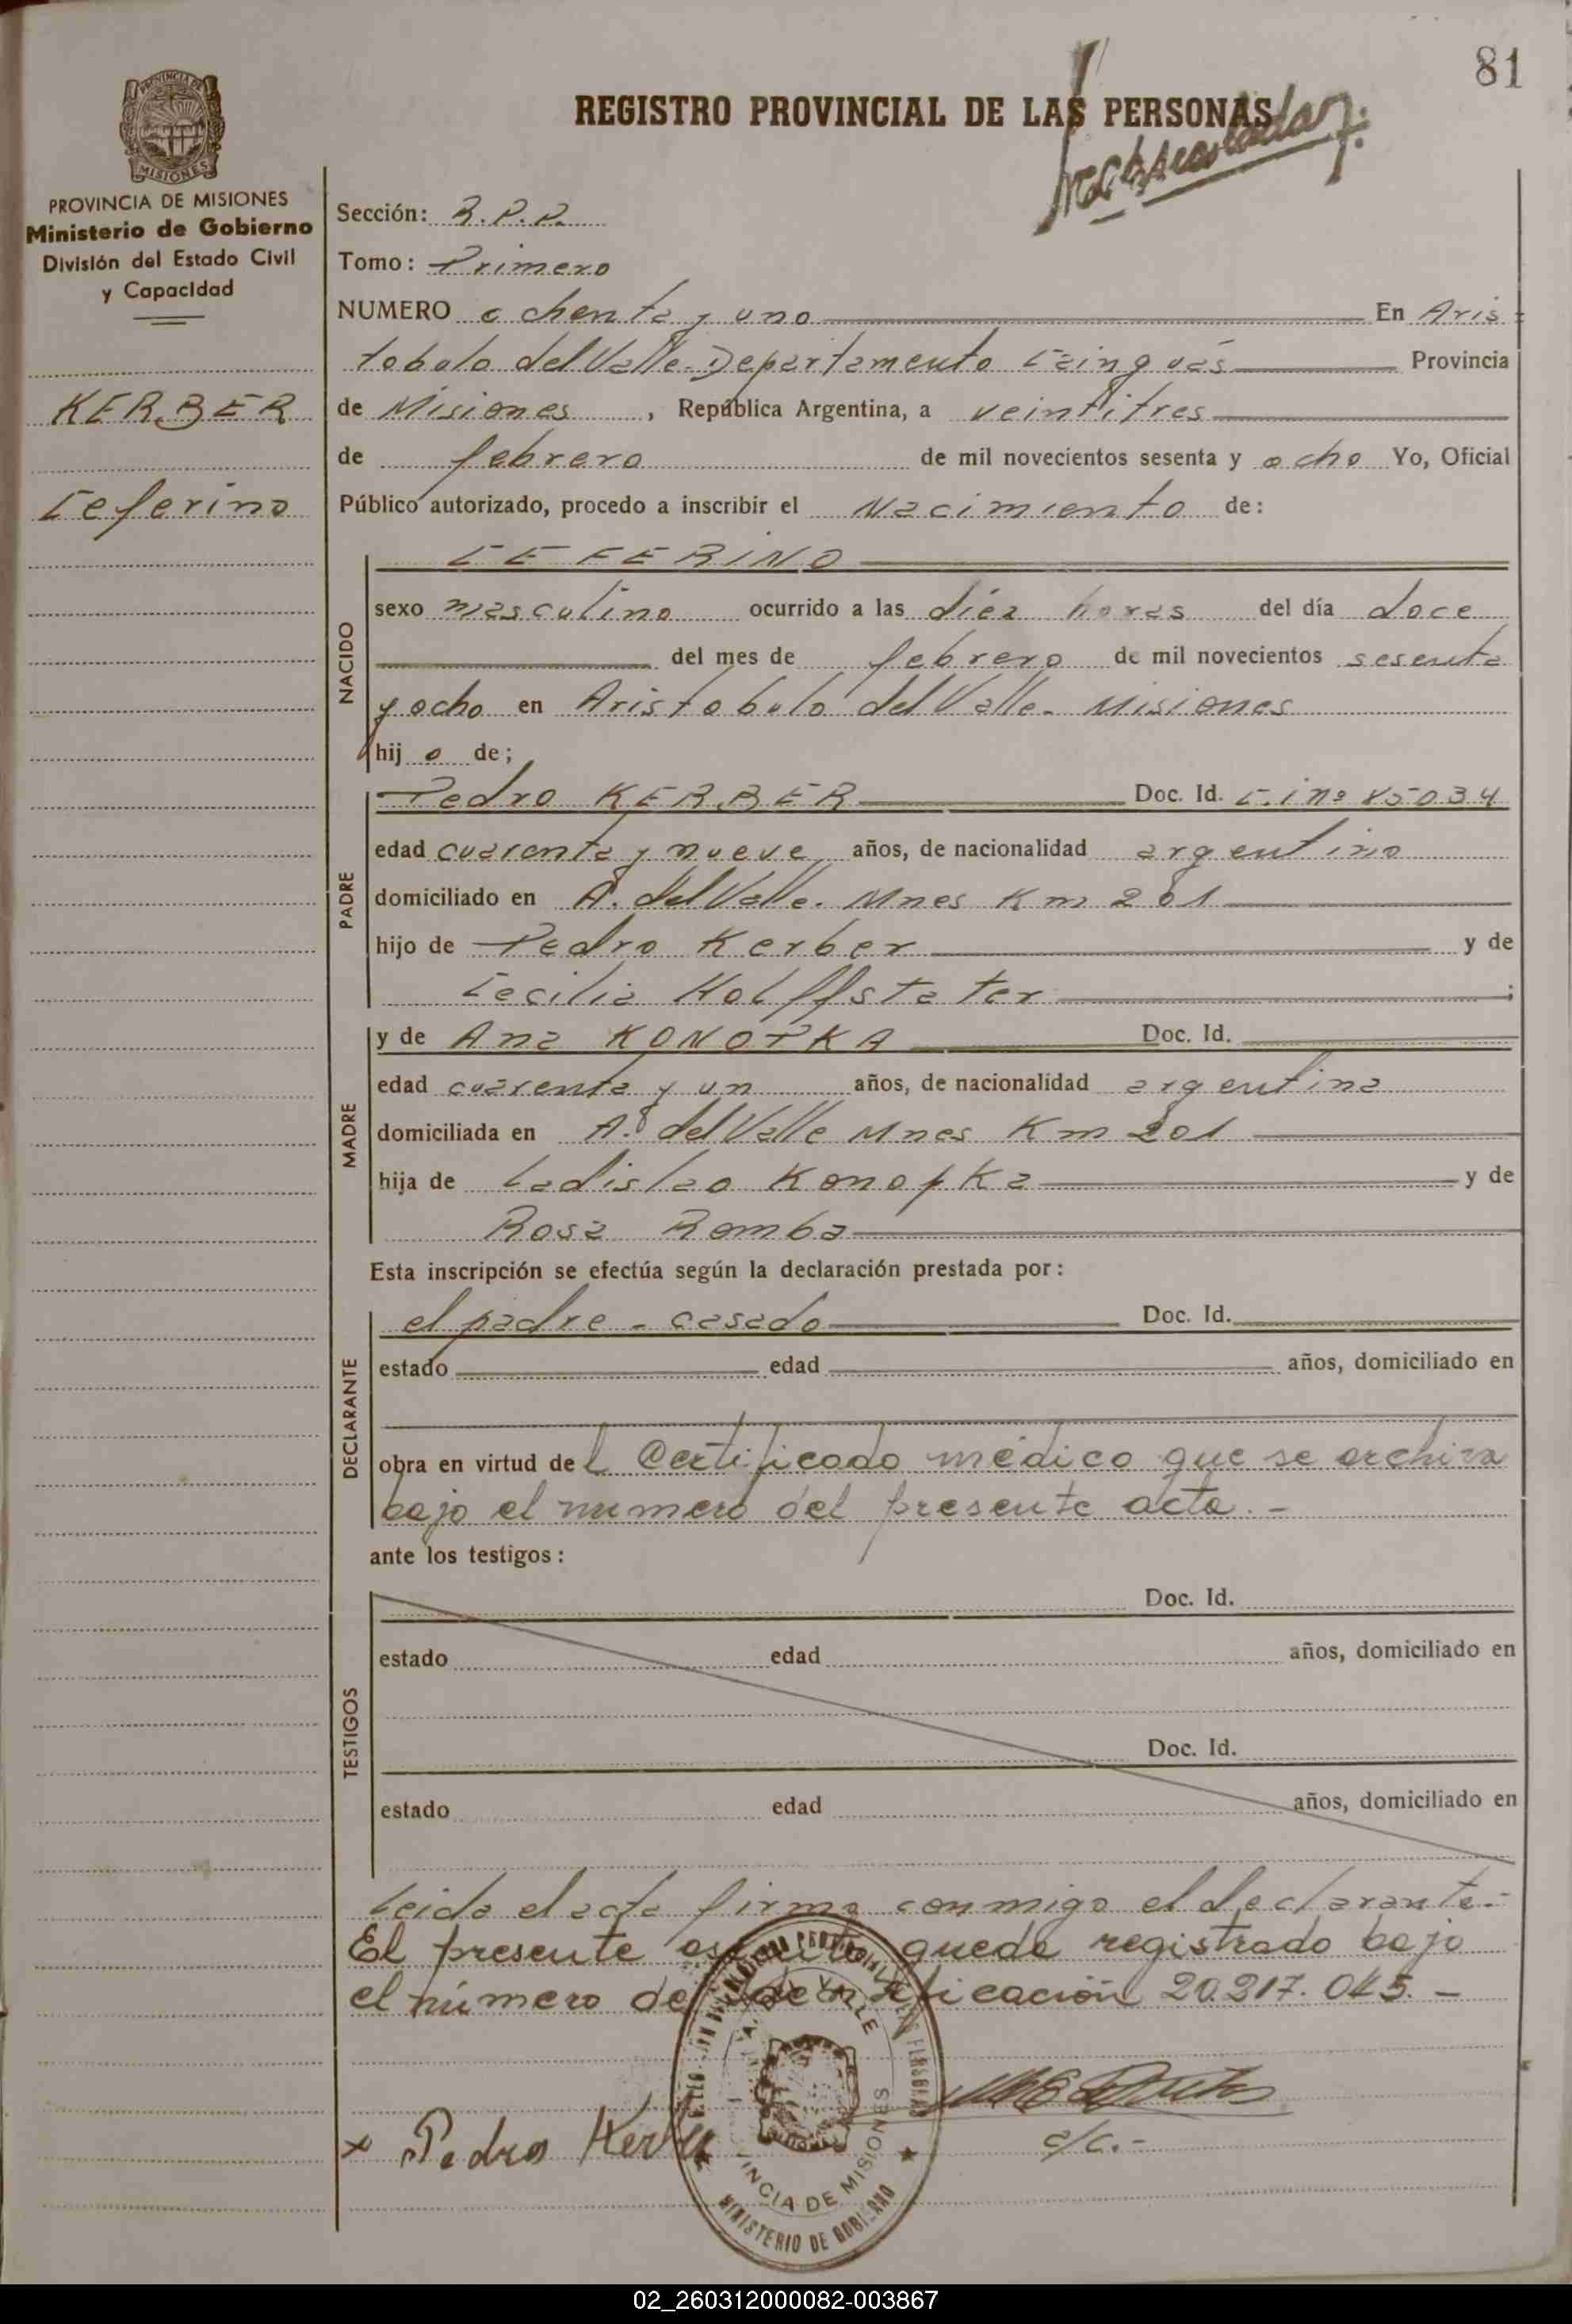 81
REGISTRO PROVINCIAL DE LAS PERSONAS
PROVINCIA DE MISIONES
MISIONES
PROVINCIA DE MISIONES
Ministerio de Gobierno
División del Estado Civil
y Capacidad
KERBER
Ceferino
Sección: R.P.P.
Tomo: Primero
NUMERO ochenta y uno En Aris-
tobulo del Valle. Departamento Cainguás Provincia
de Misiones, República Argentina, a veintitres
de febrero de mil novecientos sesenta y ocho Yo, Oficial
Público autorizado, procedo a inscribir el Nacimiento de:
NACIDO
CEFERINO
sexo masculino ocurrido a las diez horas del día doce
del mes de febrero de mil novecientos sesenta
y ocho en Aristobulo del Valle. Misiones
hijo de;
PADRE
Pedro KERBER Doc. Id. C.i nº 85034
edad cuarenta y nueve años, de nacionalidad argentino
domiciliado en A. del Valle. Mnes Km 201
hijo de Pedro Kerber y de
Cecilia Holffstater;
MADRE
y de Ana KONOPKA Doc. Id.
edad cuarenta y un años, de nacionalidad argentina
domiciliada en A.º del Valle Mnes Km 201
hija de Ladislao Konopka y de
Rosa Romba
Esta inscripción se efectúa según la declaración prestada por:
DECLARANTE
el padre - casado Doc. Id.
estado edad años, domiciliado en
obra en virtud del Certificado médico que se archiva
bajo el numero del presente acta.-
ante los testigos:
TESTIGOS
Doc. Id.
estado edad años, domiciliado en
Doc. Id.
estado edad años, domiciliado en
Leida el acta firma conmigo el declarante.-
El presente queda registrado bajo
el número de identificación 20.217.045.-
A. DEL VALLE
MINISTERIO DE GOBIERNO
x Pedro Kerber
a/c.-
02_260312000082-003867